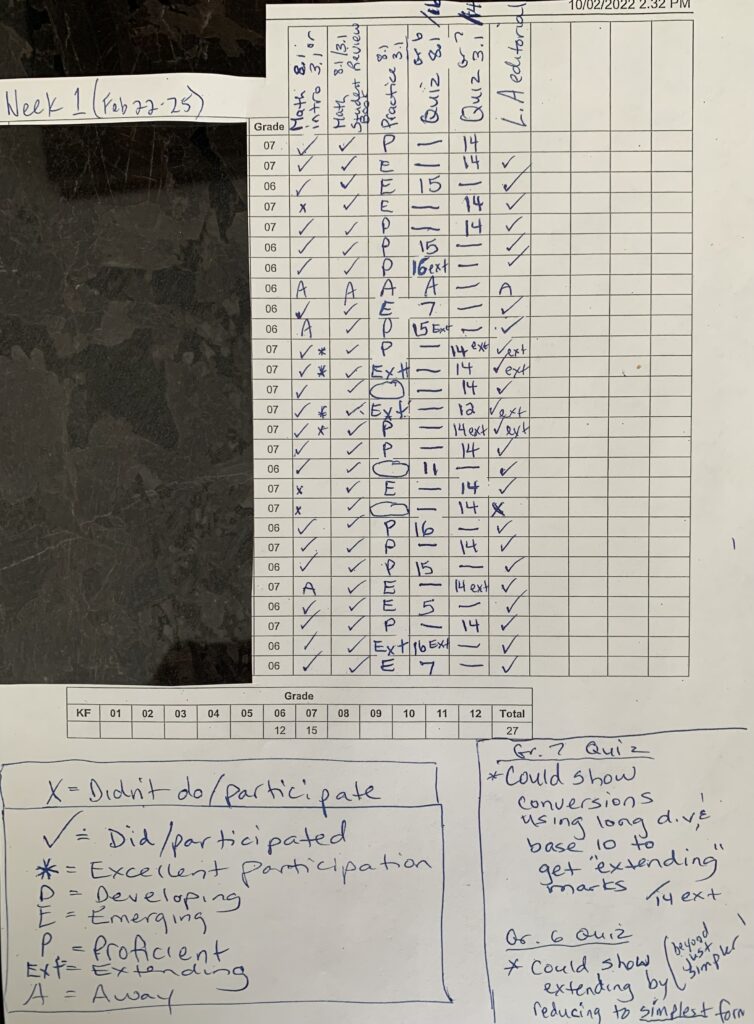 10/02/2022 2:32 PM
Week 1 (Feb 22-25)
Grade
Math 8.1 or intro 3.1
Math 8.1/3.1 Student Review Book
8.1 Practice 3.1
Gr 6 Quiz 8.1 /16
Gr 7 Quiz 3.1 /14
L.A editorial
07 ✓ ✓ P — 14
07 ✓ ✓ E — 14 ✓
06 ✓ ✓ E 15 — ✓
07 x ✓ E — 14 ✓
07 ✓ ✓ P — 14 ✓
06 ✓ ✓ P 15 — ✓
06 ✓ ✓ P 16 ext — ✓
06 A A A A — A
06 ✓ ✓ E 7 — ✓
06 A ✓ D 15 Ext — ✓
07 ✓ * ✓ P — 14 ext ✓ext
07 ✓ * ✓ Ext — 14 ✓ext
07 ✓ ✓ — 14 ✓
07 ✓ * ✓ Ext — 12 ✓ext
07 ✓ * ✓ P — 14 ext ✓ext
07 ✓ ✓ P — 14 ✓
06 ✓ ✓ 11 — ✓
07 x ✓ E — 14 ✓
07 x ✓ — 14 X
06 ✓ ✓ P 16 — ✓
07 ✓ ✓ P — 14 ✓
06 ✓ ✓ P 15 — ✓
07 A ✓ E — 14 ext ✓
06 ✓ ✓ E 5 — ✓
07 ✓ ✓ P — 14 ✓
06 ✓ ✓ Ext 16 Ext — ✓
06 ✓ ✓ E 7 — ✓
Grade
KF 01 02 03 04 05 06 07 08 09 10 11 12 Total
12 15 27
X = Didn't do/participate
✓ = Did/participated
* = Excellent participation
D = Developing
E = Emerging
P = Proficient
Ext = Extending
A = Away
Gr. 7 Quiz
* Could show
conversions
using long div. &
base 10 to
get "extending"
marks
/14 ext
Gr. 6 Quiz
* Could show
extending by (beyond just simpler)
reducing to simplest form